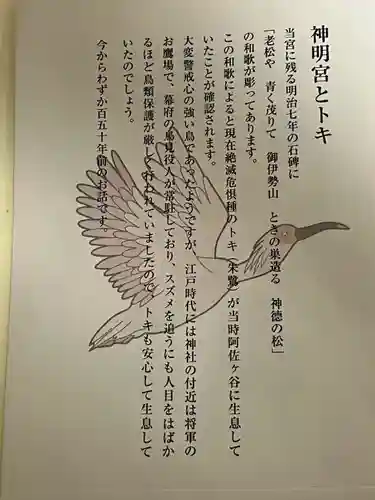 神明宮とトキ
当宮に残る明治七年の石碑に
「老松や　青く茂りて　御伊勢山　ときの巣造る　神徳の松」
の和歌が彫ってあります。
この和歌によると現在絶滅危惧種のトキ（朱鷺）が当時阿佐ヶ谷に生息して
いたことが確認されます。
大変警戒心の強い鳥であったようですが、江戸時代には神社の付近は将軍の
お鷹場で、幕府の鳥見役人が常駐しており、スズメを追うにも人目をはばか
るほど鳥類保護が厳しく行われていましたので、トキも安心して生息して
いたのでしょう。
今からわずか百五十年前のお話です。